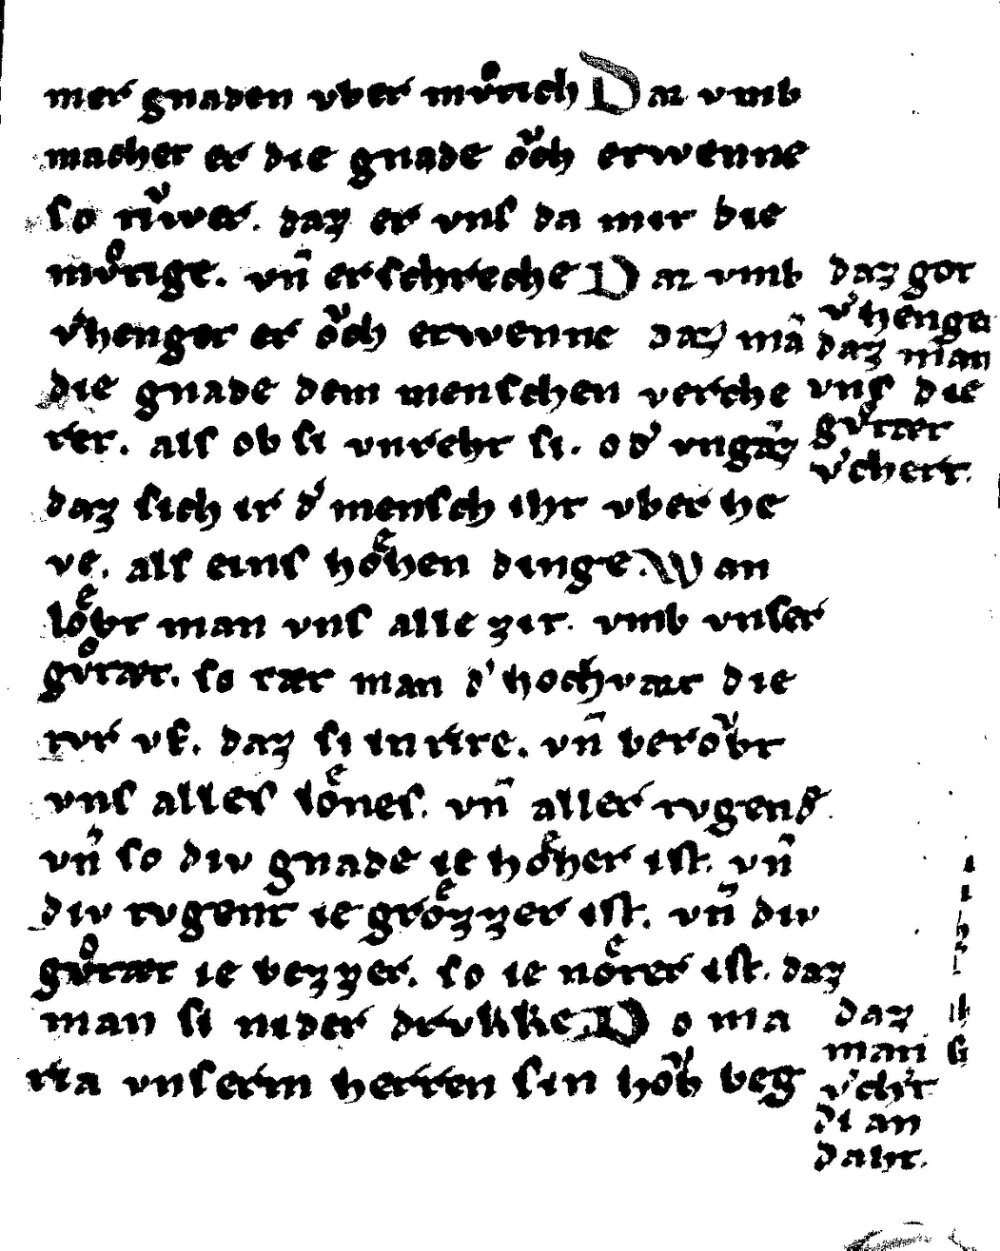 mer gnaden vber mvͦtich Dar vmb
machet er die gnade oͮch etwenne
so tiͮwer. daz er vns da mit die
mvͦtige. vn̄ erschreche Dar vmb
v͛henget er oͮch etwenne daz mā
die gnade dem menschen verche
ret. als ob si vnreht si. od͛ vngāz
daz sich ir d͛ mensch iht vber he
ve. als eins hoͤhen dinge. Wan
loͤbt man vns alle zit. vmb vnser
gvͦtæt. so tæt man d͛ hochvart die
tvr vf. daz si in rite. vn̄ beroͮbt
vns alles loͤnes. vn̄ aller tvgend͛.
vn̄ so div gnade ie hoͤher ist. vn̄
div tvgent ie groͤzzer ist. vn̄ div
gvͦtæt ie bezzer. so ie noͤter ist. daz
man si nider drvkke Do ma
ria vnserm herren sin hoͮb beg
daz got
v͛henget
daz man
vns die
gvͦttet
v͛chert.
daz
man
v͛cher̄t
di an
daht.